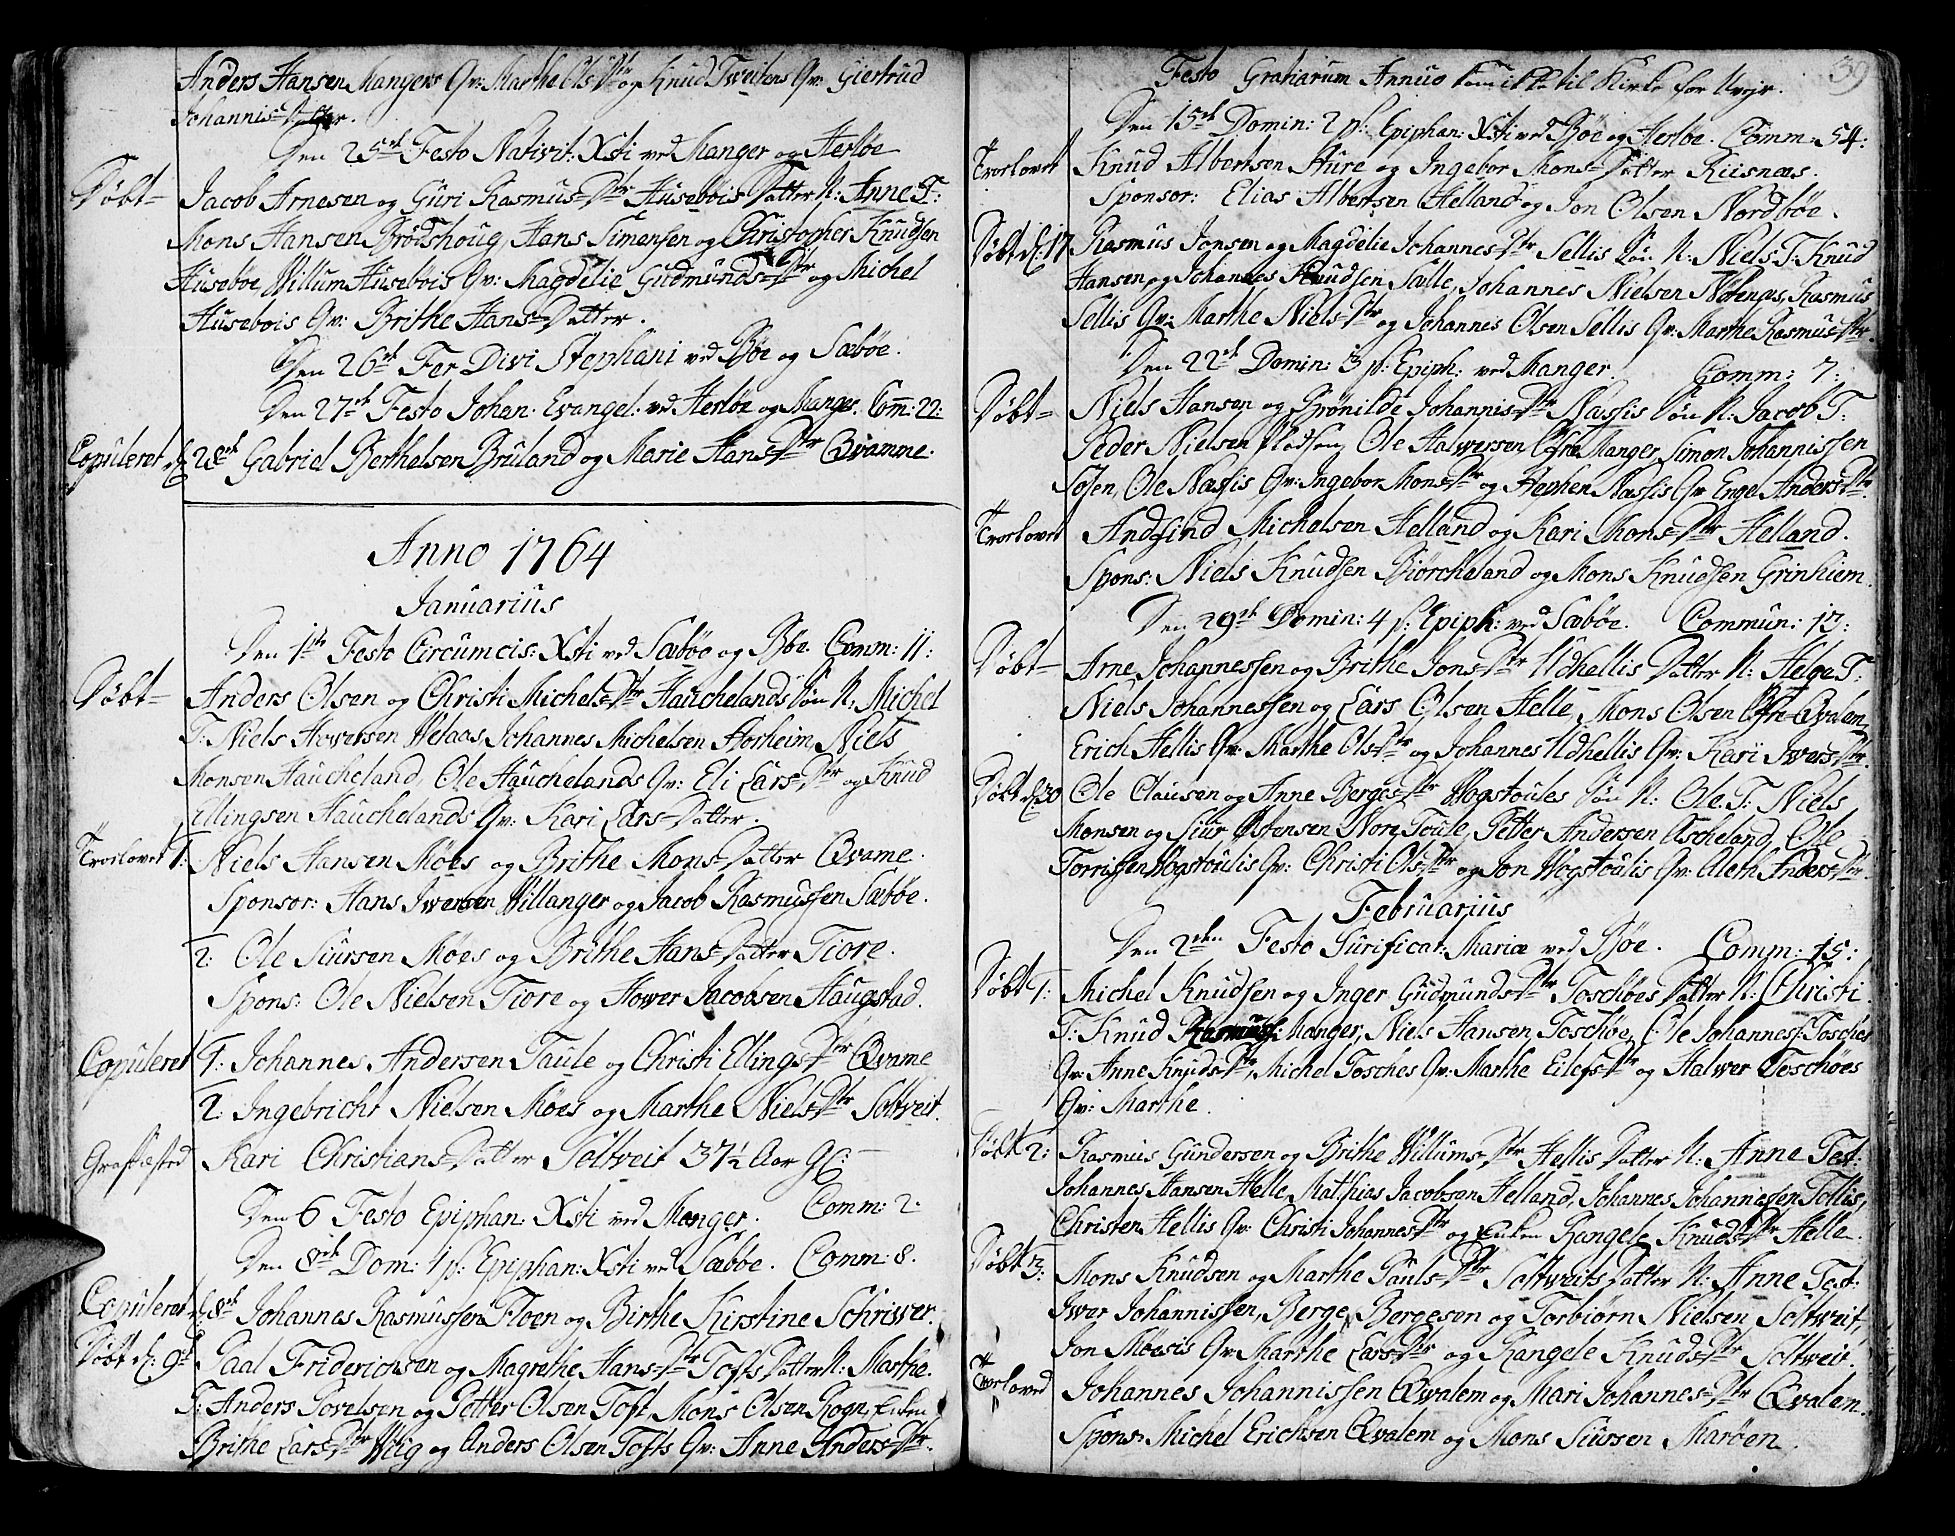 Anders Hansen Mangers Qv: Marthe Ols Dtr og Knud Tweitens Qv: Giertrud
Johannis Datter.
Den 25de Festo Nativit: Xsti ved Manger og Herløe
Døbt Jacob Arnesen og Guri Rasmus Dtr Husebøis Datter N: Anne T:
Mons Hansen Brødshoug, Hans Simensen og Christopher Knudsen
Husebøe, Willum Husebøis Qv: Magdelie Gudmunds Dtr og Michel
Husebøis Qv: Brithe Hans Datter.
Den 26de Fer Divi Stephani ved Bøe og Sæbøe.
Den 27de Festo Johan. Evangel: ved Herløe og Manger. Com: 22:
Copuleret d. 28de Gabriel Berthelsen Bruland og Marie Hans Dtr Qvamme.
Anno 1764
Januarius
Den 1ste Festo Circumcis: Xsti ved Sæbøe og Bøe. Comm: 11:
Døbt Anders Olsen og Christi Michels Dtr Hauchelands Søn N: Michel
T: Niels Howersen Welaas, Johannes Michelsen Horheim, Niels
Monsen Haucheland, Ole Hauchelands Qv: Eli Lars Dtr og Knud
Ellingsen Hauchelands Qv: Kari Lars Datter.
Trorlovet 1: Niels Hansen Møes og Brithe Mons Datter Qvame.
Sponsor: Hans Iwersen Willanger og Jacob Rasmussen Sæbøe.
2: Ole Siursen Møes og Brithe Hans Datter Tiore.
Spons: Ole Nielsen Tiore og Hower Jacobsen Haugstad.
Copuleret 1: Johannes Andersen Taule og Christi Ellings Dtr Qvame
2: Ingebricht Nielsen Møes og Marthe Niels Dtr Soltveit.
Graffæsted Kari Christians Datter Soltveit 37½ Aar Gl:
Den 6 Festo Epiphan: Xsti ved Manger. Comm: 2:
Den 8de Dom: 1 p: Epiphan: Xsti ved Sæbøe. Comm: 8.
Copuleret d: 8de Johannes Rasmussen Floen og Birthe Kirstine Schriwer.
Døbt d: 9de Paal Friderichsen og Magrethe Hans Dtr Tofts Datter N: Marthe.
T: Anders Povelsen og Petter Olsen Toft, Mons Olsen Rogn, Enken
Brithe Lars Dtr Wiig og Anders Olsen Tofts Qv: Anne Anders Dtr.
39
Festo Gratiarum Annuo kom ikke til Kirke for Uvejr.
Den 15de Domin: 2 p: Epiphan: Xsti ved Bøe og Herløe. Comm: 54:
Trorlovet Knud Albertsen Hure og Ingebor Mons Datter Riisnæs.
Sponsor: Elias Albertsen Helland og Jon Olsen Nordbøe.
Døbt d: 17 Rasmus Jonsen og Magdelie Johannes Dtr Sellis Søn N: Niels T: Knud
Hansen og Johannes Knudsen Sælle, Johannes Nielsen Norenæs, Rasmus
Sellis Qv: Marthe Niels Dtr og Johannes Olsen Sellis Qv: Marthe Rasmus Dtr.
Den 22de Domin: 3 p: Epiph: ved Manger. Comm: 7:
Døbt Niels Hansen og Brønilde Johannis Dtr Nassis Søn N: Jacob T:
Peder Nielsen Pladsen, Ole Halwersen Øfre Manger, Simon Johannissen
Ole Nassis Qv: Ingebor Mons Dtr og Stephen Nassis Qv: Engel Anders Dtr.
Trorlovet Andfind Michelsen Helland og Kari Mons Dtr Helland.
Spons: Niels Knudsen Biørcheland og Mons Knudsen Grinhiem.
Den 29de Domin: 4 p: Epiph: ved Sæbøe. Commun: 13:
Døbt Arne Johannessen og Brithe Jons Dtr Udhellis Datter N: Helge T:
Niels Johannessen og Lars Olsen Helle, Mons Olsen Øfre Qvalen,
Erich Hellis Qv: Marthe Ols Dtr og Johannes Udhellis Qv: Kari Iwers Dtr.
Døbt d: 30 Ole Clausen og Anne Berges Dtr Hogstoules Søn N: Ole T: Niels
Monsen og Siur Østensen Nore Toule, Petter Andersen Ascheland, Ole
Torrissen Hogstoulis Qv: Christi Ols Dtr og Jon Hogstoulis Qv: Aleth Anders Dtr.
Februarius
Den 2den Festo Purificat: Mariæ ved Bøe. Comm: 15:
Døbt 1: Michel Knudsen og Inger Gudmunds Dtr Toschøes Datter N: Christi
T: Knud Rasmus: Manger, Niels Hansen Toschøe, Ole Johannes: Tosches
Qv: Anne Knuds Dtr, Michel Tosches Qv: Marthe Eilefs Dtr og Halwer Toschøes
Qv: Marthe.
Døbt 2: Rasmus Gundersen og Brithe Willums Dtr Hellis Datter N: Anne Test:
Johannes Hansen Helle, Mathias Jacobsen Helland, Johannes Johannessen Toftis,
Christen Hellis Qv: Christi Johannes Dtr og Enken Rangele Knuds Dtr Helle.
Døbt 3: Mons Knudsen og Marthe Pauls Dtr Soltweits Datter N: Anne Test:
Iwer Johannissen, Berge Bergesen og Torbiørn Nielsen Soltweit,
Jon Møesis Qv: Marthe Lars Dtr og Rangele Knuds Dtr Soltweit.
Trorloved Johannes Johannissen Qvalem og Mari Johannes Dtr Qvalem.
Spons: Michel Erichsen Qvalem og Mons Siursen Marøen.